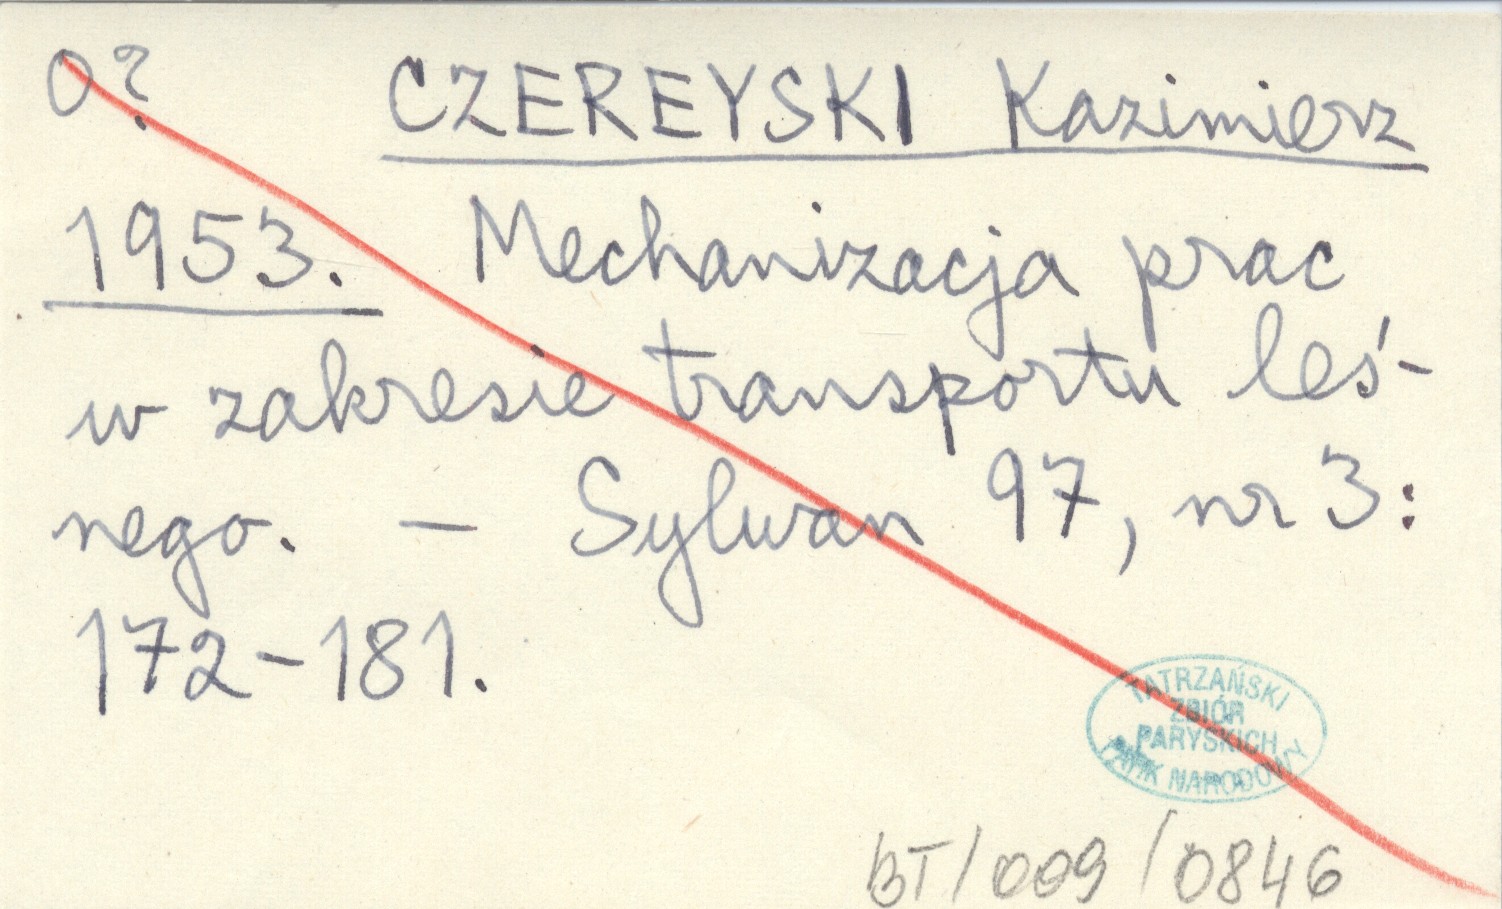 0? CZEREYSKI Kazimierz
1953. Mechanizacja prac
w zakresie transportu leś-
nego. — Sylwan 97, nr 3:
172-181.
TATRZAŃSKI
ZBIÓR
PARYSKICH
PARK NARODOWY
BT/009/0846